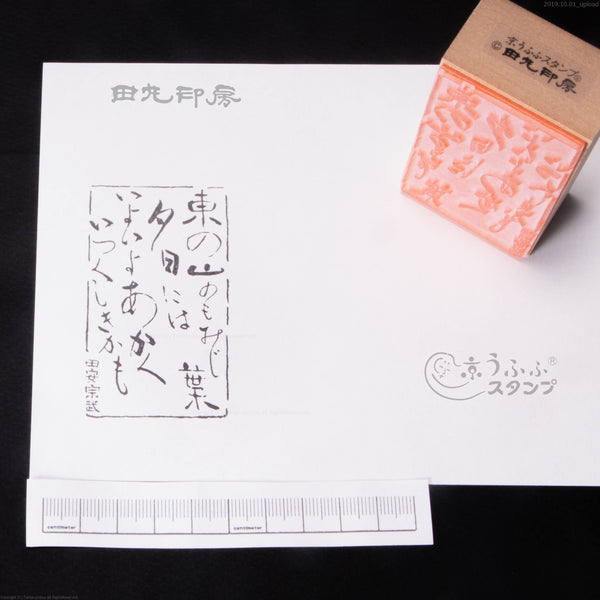 2019.10.01_upload
京うふふスタンプ®
©田丸印房
田丸印房
東の山のもみじ葉
夕日には
いよいよあかく
いつくしきかも
田安宗武
京うふふ®
スタンプ
centimeter
centimeter